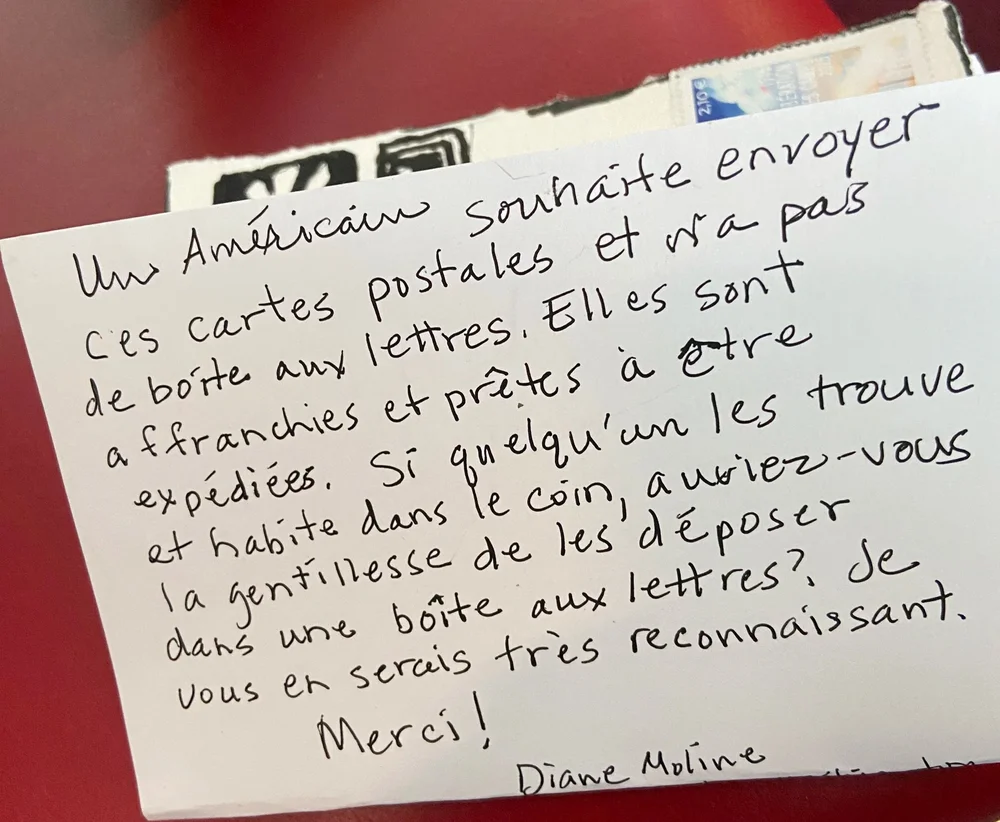 2,10 €
Un Américain souhaite envoyer
ces cartes postales et n'a pas
de boîte aux lettres. Elles sont
affranchies et prêtes à être
expédiées. Si quelqu'un les trouve
et habite dans le coin, auriez-vous
la gentillesse de les déposer
dans une boîte aux lettres? Je
vous en serais très reconnaissant.
Merci!
Diane Moline